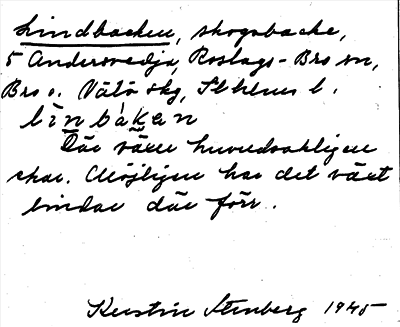 Lindbacken, skogsbacke,
5 Andersvedja, Roslags-Bro sn,
Bro o. Vätö skg, Sthlms l.
linbakan
Där växer huvudsakligen
skog. Möjligen har det växt
lindar där förr.
Kerstin Stenberg 1945